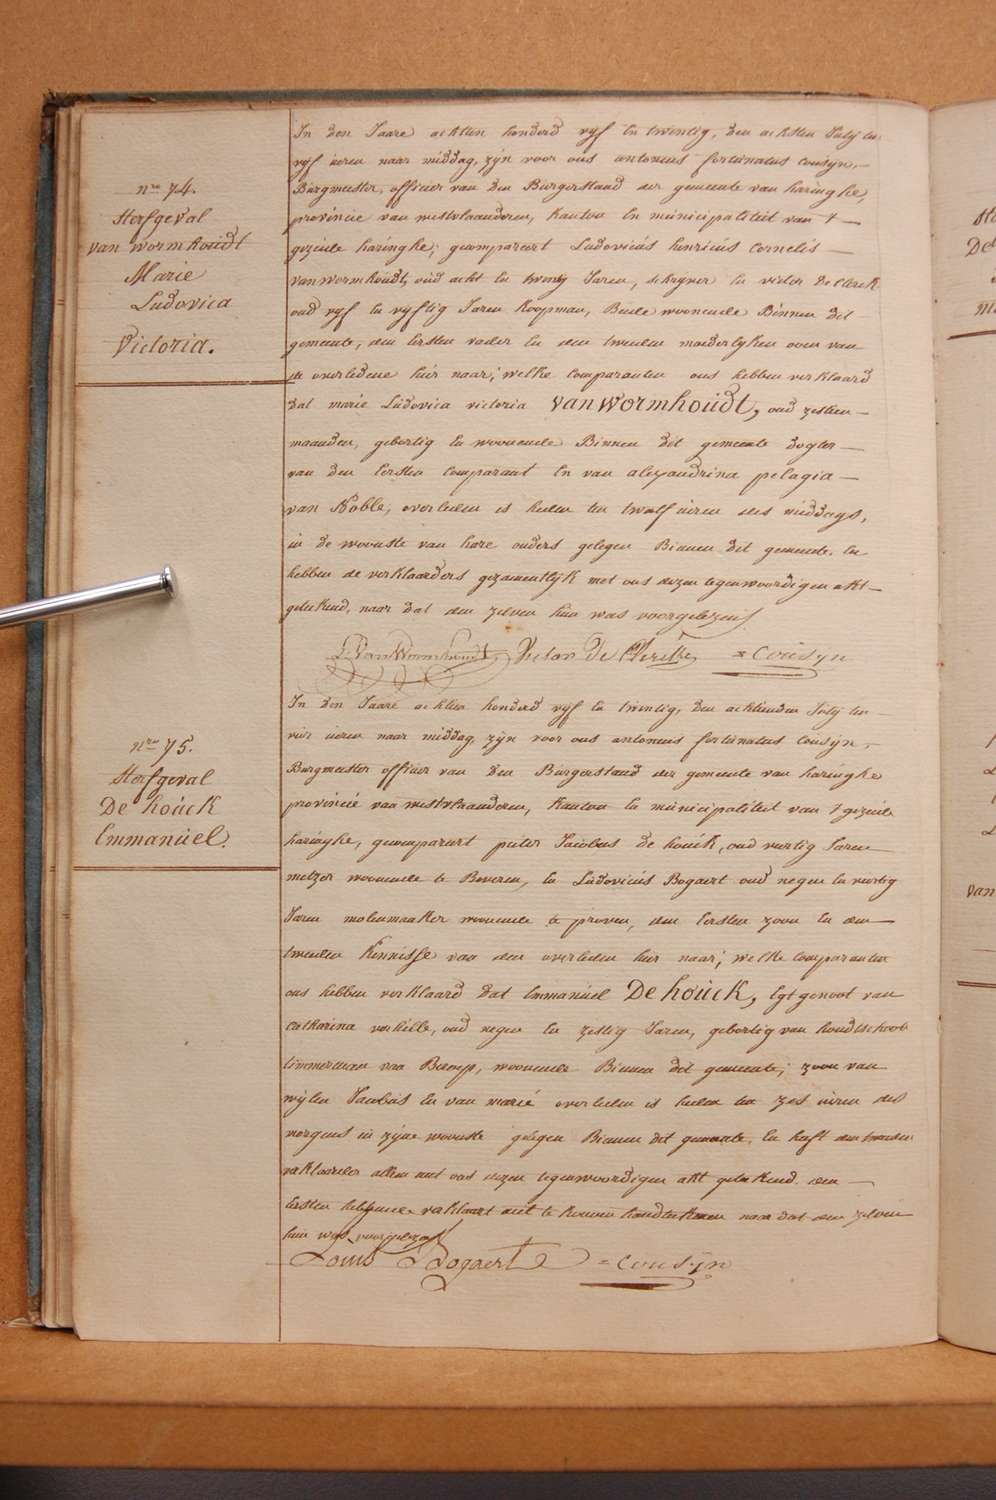 nro 74.
Sterfgeval
van wormhoudt
Marie
Ludovica
Victoria.
In den Jaare achtien honderd vyf en twintig, den achsten July ten
vyf uren naar middag, zyn voor ons antonius fortunatus Cousyn,
Burgmeester, officier van den Burgerstaed der gemeente van haringhe,
provincie van westvlaanderen, kanton en municipaliteit van t
gezeide haringhe; gecompareert Ludovicus henricus Cornelis
van wormhoudt, oud acht en twintig Jaren, schryver en victor De Clerck
oud vyf en vyftig Jaren koopman, Beide woonende Binnen dit
gemeente, den Eersten vader en den tweeden moederlyken oom van
de overledene hier naar; welke comparanten ons hebben verklaard
dat marie Ludovica victoria van wormhoudt, oud zestien
maanden, gebortig en woonende Binnen dit gemeente dogter
van den Eersten comparant en van alexandrina pelagia
van Robble, overleden is heden ten twalf uren des middags,
in de woonste van hare ouders gelegen Binnen dit gemeente. En
hebben de verklaarders gezamentlyk met ons dezen tegenwoordigen akt
geteekend, naar dat den zelven hun was voorgelezen
L. Van Wormhoudt Victor De Clercke = Cousyn
nro 75.
Sterfgeval
De houck
Emmanuel.
In den Jaare achtien honderd vyf en twintig, den achtienden July ten
vier uren naar middag, zyn voor ons antonius fortunatus Cousyn,
Burgmeester officier van den Burgerstaed der gemeente van haringhe
provincie van westvlaanderen, kanton en municipaliteit van t gezeide
haringhe, gecompareert pieter Jacobus De houck, oud veertig Jaren
metzer woonende te Beveren, en Ludovicus Bogaert oud negen en veertig
Jaren molenmaaker woonende te proven, den Eersten zoon en den
tweeden kennisse van den overleden hier naar; welke comparanten
ons hebben verklaard dat Emmanuel De houck, Egtgenoot van
catharina verhille, oud negen en zestig Jaren, gebortig van hondtschoote
timmerman van Beroep, woonende Binnen dit gemeente; zoon van
wylen Jacobus en van marie overleden is heden ten zes uren des
morgens in zyne woonste gelegen Binnen dit gemeente. En heeft den tweeden
verklaarder alleen met ons dezen tegenwoordigen akt geteekend. den
Eersten hebbende verklaart niet te konnen handteekenen naar dat den zelven
hun was voorgelezen
Louis Bogaert = Cousyn
van